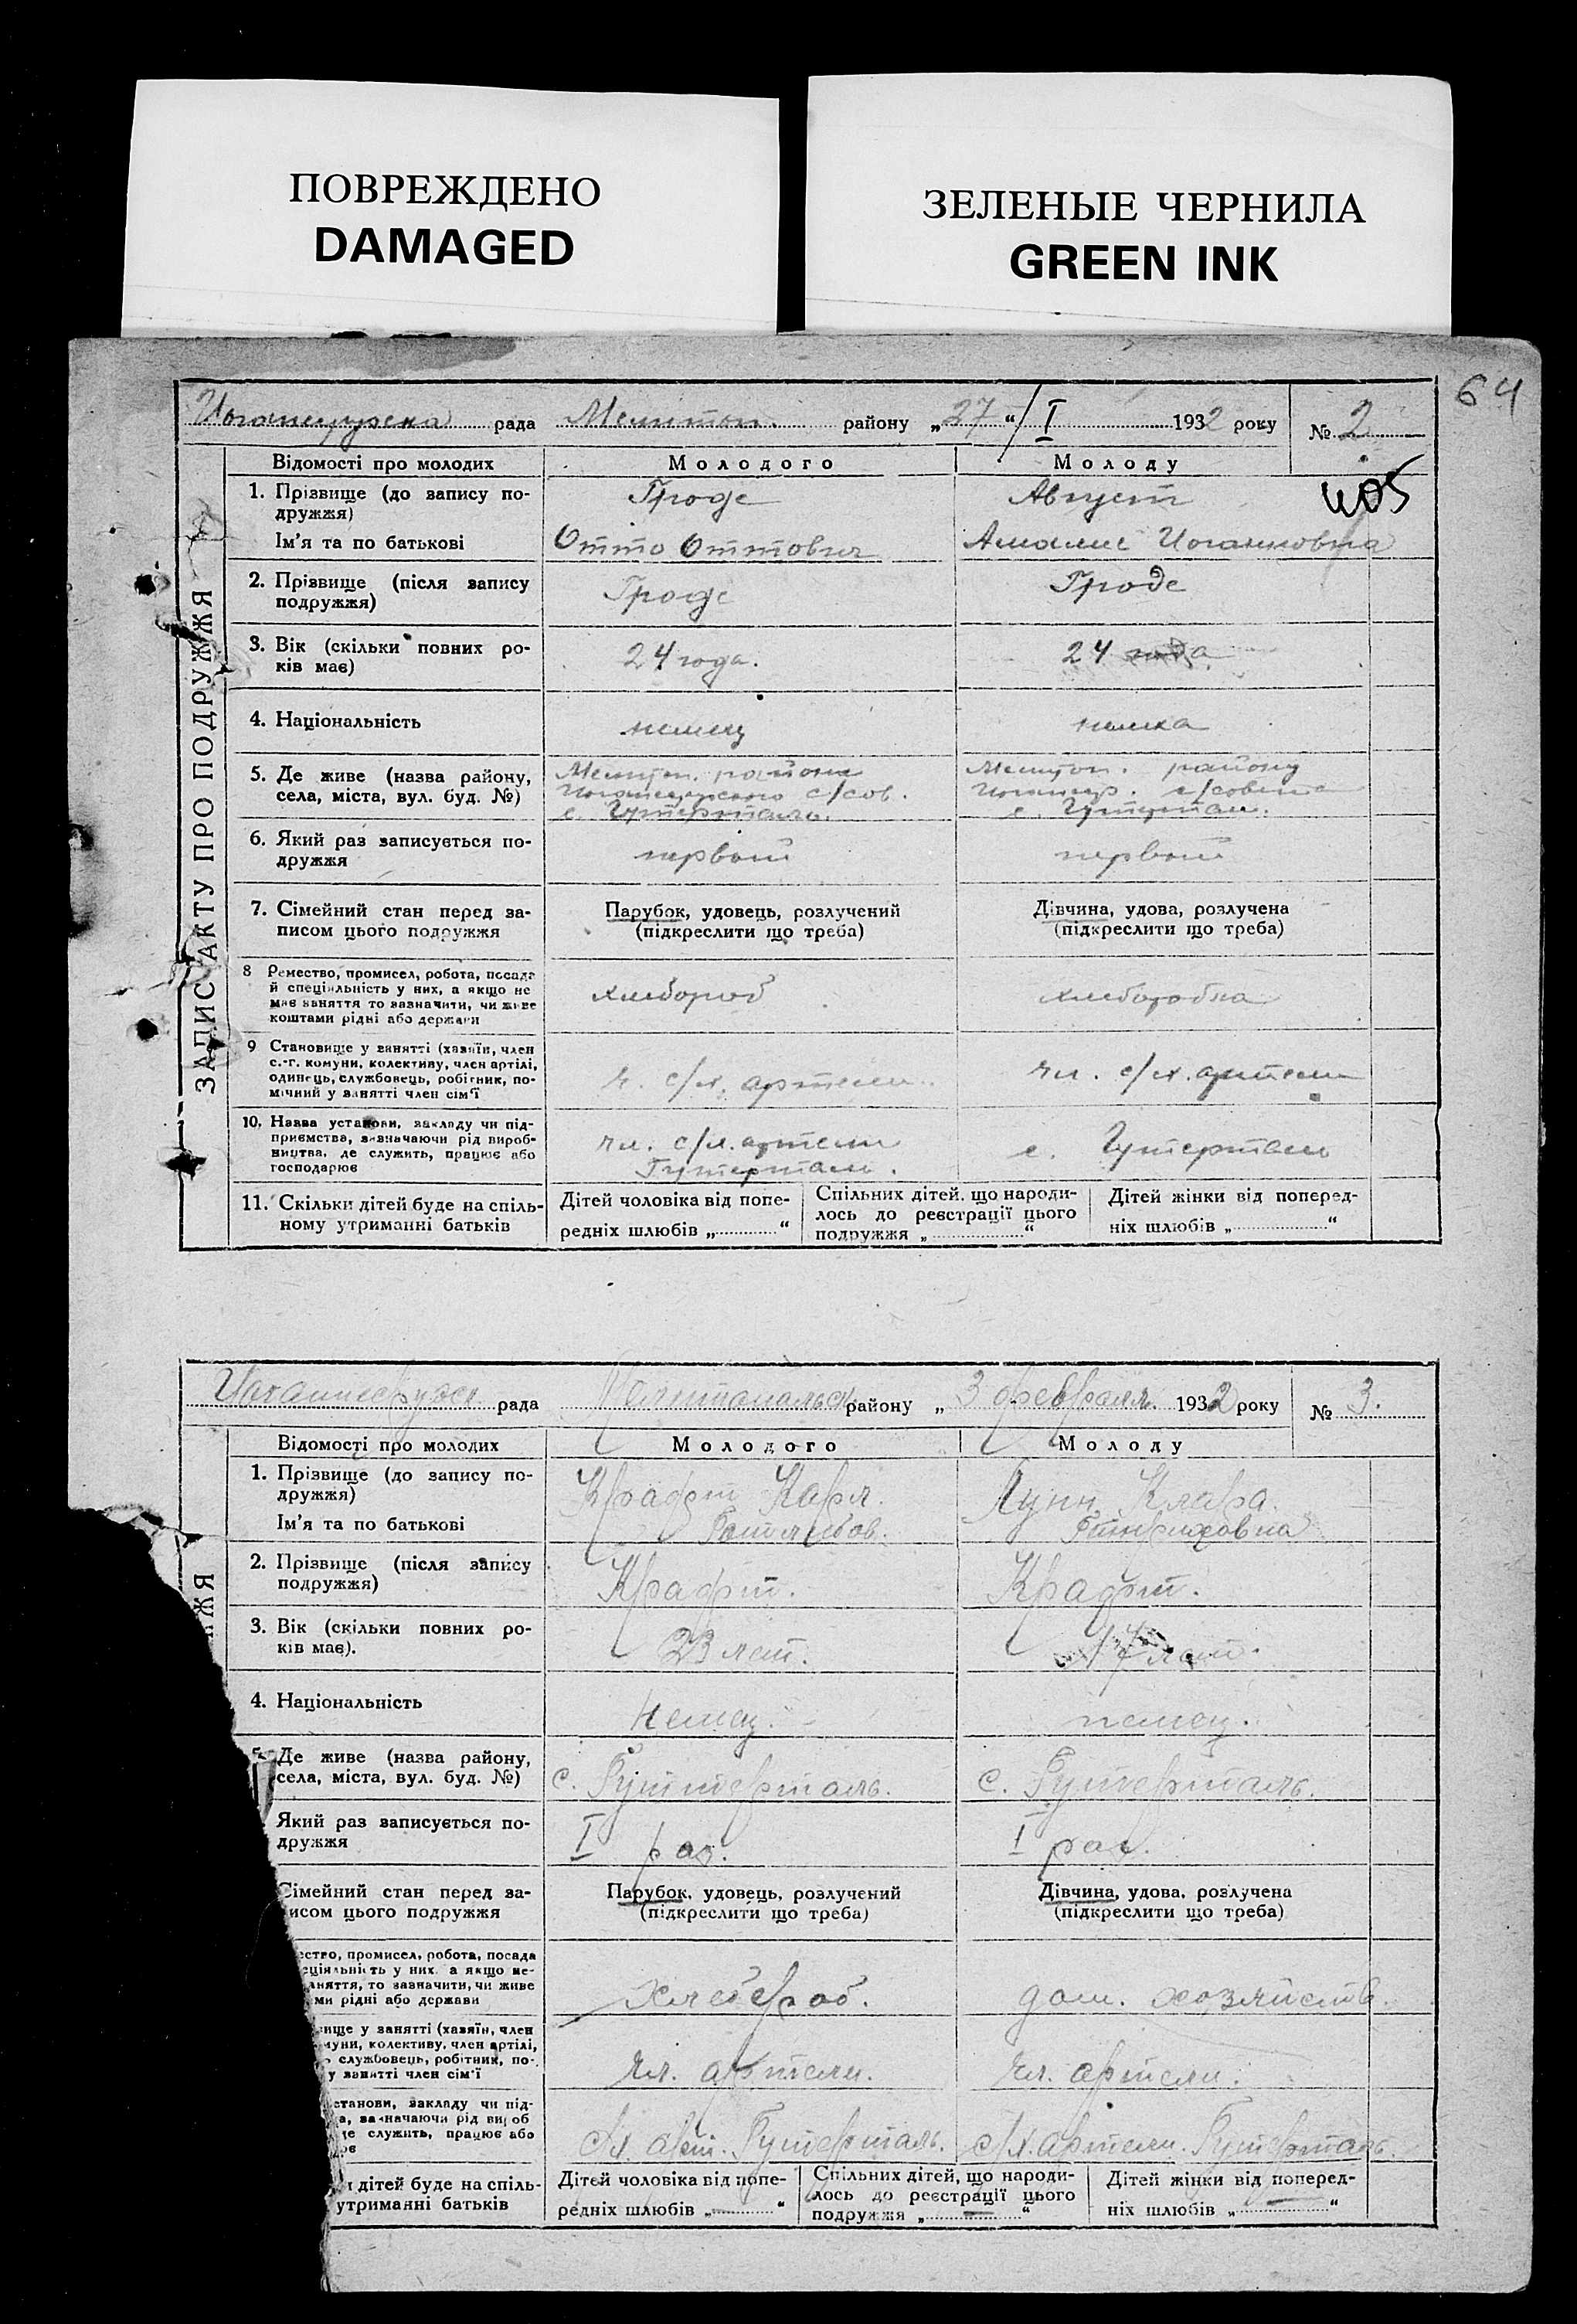 ПОВРЕЖДЕНО
DAMAGED
ЗЕЛЕНЫЕ ЧЕРНИЛА
GREEN INK
64
рада района „27“/I 1932 року № 2
ЗАПИС АКТУ ПРО ПОДРУЖЖЯ
Відомості про молодих Молодого Молоду
405
1. Прізвище (до запису по-
дружжя) Гроде Август
Ім'я та по батькові Отто Оттович Амалие Иоганновна
2. Прізвище (після запису
подружжя) Гроде Гроде
3. Вік (скільки повних ро-
ків має) 24 года. 24 года
4. Національність немец немка
5. Де живе (назва району,
села, міста, вул. буд. №) района с/сов. району с/совета
с. Гутерталь. с. Гутертал.
6. Який раз записується по-
дружжя первый первый
7. Сімейний стан перед за-
писом цього подружжя
Парубок, удовець, розлучений
(підкреслити що треба)
Дівчина, удова, розлучена
(підкреслити що треба)
8 Ремество, промисел, робота, посада
й спеціяльність у них, а якщо не
має заняття то зазначити, чи живе
коштами рідні або держави
хлебороб хлеборобка
9 Становище у занятті (хазяїн, член
с.-г. комуни, колективу, член артілі,
одинець, службовець, робітник, по-
мічний у занятті член сім'ї
ч. с/х. артели. чл. с/х. артели
10. Назва установи, закладу чи під-
приємства, зазначаючи рід вироб-
ництва, де служить, працює або
господарює
чл. с/х. артели
Гутерталь. с. Гутерталь
11. Скільки дітей буде на спіль-
ному утриманні батьків
Дітей чоловіка від попе-
редніх шлюбів „ “
Спільних дітей, що народи-
лось до реєстрації цього
подружжя „ “
Дітей жінки від поперед-
ніх шлюбів „ “
рада району „ 3 февраля. 1932 року № 3.
ЖЯ
Відомості про молодих Молодого Молоду
1. Прізвище (до запису по-
дружжя) Крафт Карл. Клара.
Ім'я та по батькові Готлибов.
2. Прізвище (після запису
подружжя) Крафт. Крафт.
3. Вік (скільки повних ро-
ків має). 23 лет. 17 лет.
4. Національність Немец. немец.
5. Де живе (назва району,
села, міста, вул. буд. №) с. Гуттерталь. с. Гутерталь.
Який раз записується по-
дружжя I раз. I раз.
Сімейний стан перед за-
писом цього подружжя
Парубок, удовець, розлучений
(підкреслити що треба)
Дівчина, удова, розлучена
(підкреслити що треба)
ество, промисел, робота, посада
еціяльність у них, а якщо не-
аняття, то зазначити, чи живе
ми рідні або держави
Хлебороб. дом. хозяйств.
ище у занятті (хазяїн, член
муни, колективу, член артілі,
службовець, робітник, по-
у занятті член сім'ї
чл. артели. чл. артели.
станови, закладу чи під-
а, зазначаючи рід вироб
де служить, працює або
ює
с/х. арт. Гутерталь. с/х. артели. Гутерталь.
и дітей буде на спіль-
утриманні батьків
Дітей чоловіка від попе-
редніх шлюбів „ — “
Спільних дітей, що народи-
лось до реєстрації цього
подружжя „ — “
Дітей жінки від поперед-
ніх шлюбів „ — “